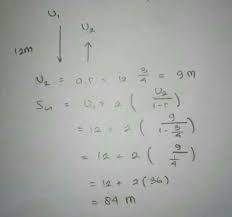 U₁
U₂
12m
U₂ = a.r = 12 3/4 = 9 m
S∞ = U₁ + 2 ( U₂ / 1-r )
= 12 + 2 ( 9 / 1 - 3/4 )
= 12 + 2 ( 9 / 1/4 )
= 12 + 2 (36)
= 84 m